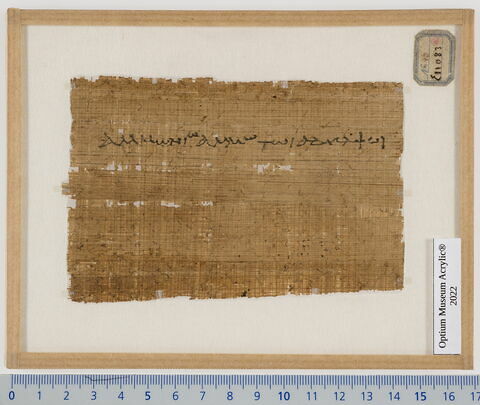 αμμωνιω τωι αδελφωι
Optium Museum Acrylic®
2022
0 1 2 3 4 5 6 7 8 9 10 11 12 13 14 15 16 17